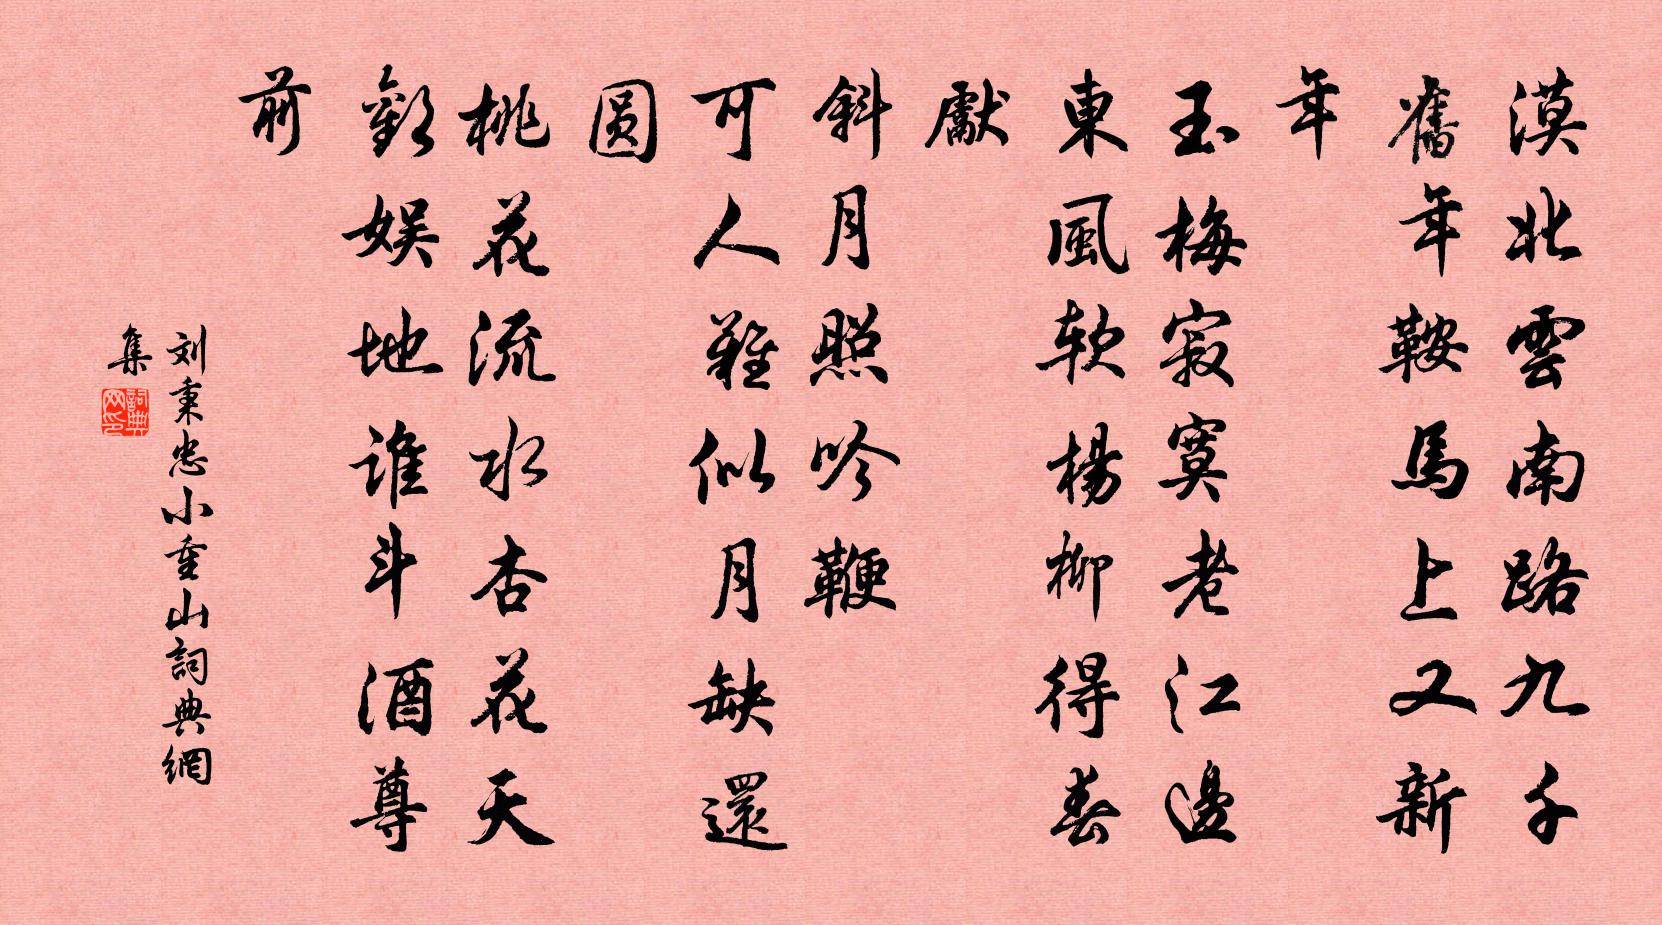 漠北雲南路九千
舊年鞍馬上又新
年
玉梅寂寞老江邊
東風软楊柳得春
獻
斜月照吟鞭
可人難似月缺還
圓
桃花流水杏花天
歡娱地谁斗酒尊
前
刘秉忠小重山詞典網
集
詞典网印